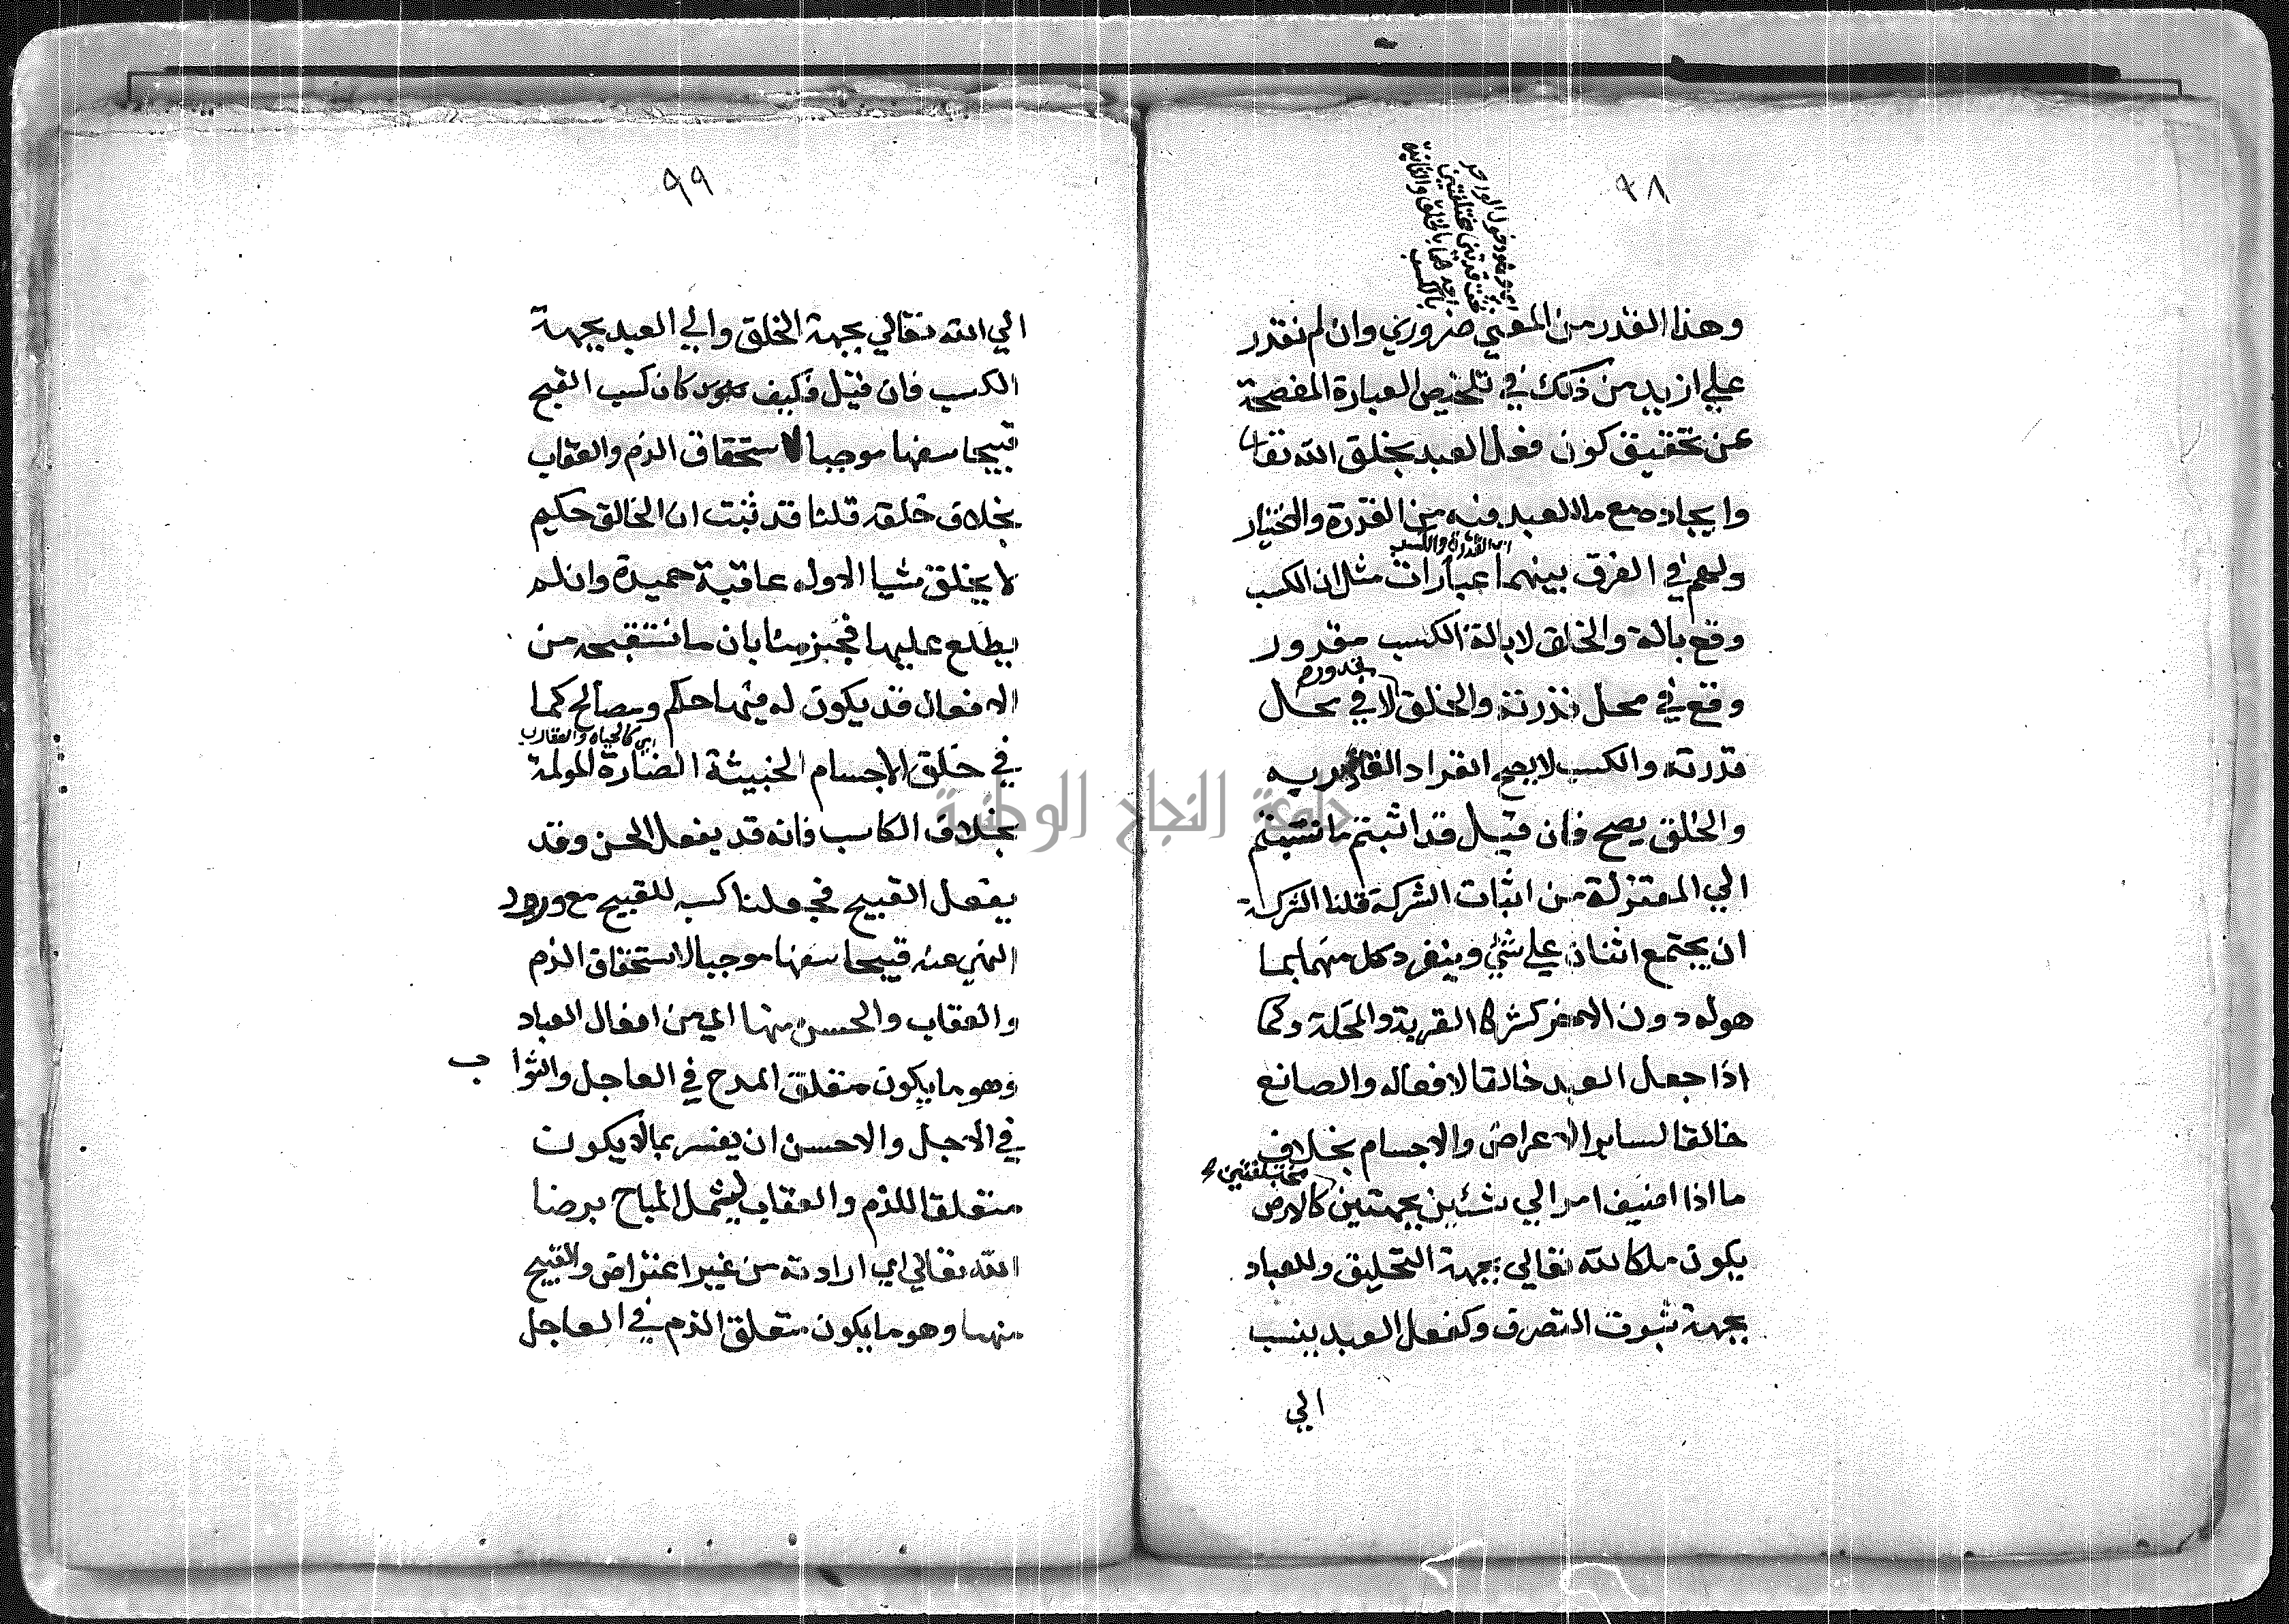 ٩٨
اي وهو دخول الواحد
تحت قدرتين مختلفتين
احدهما بالخلق والثانية
بالكسب
وهذا القدر من المعني ضروري وان لم نقدر
علي ازيد من ذلك في تلخيص العبارة المفصحة
عن تحقيق كون فعل العبد بخلق الله تعا
وايجاده مع ما للعبد فيه من القدرة والاختيار
اي القدرة والكسب
ولهم في الفرق بينهما عبارات مثل ان الكسب
وقع بالة والخلق لا بالة الكسب مقدور
مقدوره
وقع في محل قدرته والخلق لا في محل
قدرته والكسب لا يصح انفراد القادر به
والخلق يصح فان قيل قد اثبتم ما نسبتم
الي المعتزلة من اثبات الشركة قلنا الشركة
ان يجتمع اثنان علي شئ وينفرد كل منهما بما
هو له دون الاخر كشركا القرية والمحلة وكما
اذا جعل العبد خالقا لافعاله والصانع
خالقا لساير الاعراض والاجسام بخلاف
مختلفتين
ما اذا اضيف امر الي شئين بجهتين كالارض
يكون ملكا لله تعالي بجهة التخليق وللعباد
بجهة ثبوت التصرف وكفعل العبد ينسب
الي
٩٩
الي الله تعالي بجهة الخلق والي العبد بجهة
الكسب فان قيل فكيف كان كسب القبيح
قبيحا سفها موجبا لاستحقاق الذم والعقاب
بخلاف خلقه قلنا قد ثبت ان الخالق حكيم
لا يخلق شيا الا وله عاقبة حميدة وان لم
يطلع عليها فجزمنا بان ما نستقبحه من
الافعال قد يكون له فيها حكم ومصالح كما
اي كالحياة والعقارب
في خلق الاجسام الخبيثة الضارة المولمة
بخلاف الكاسب فانه قد يفعل الحسن وقد
يفعل القبيح فجعلنا كسبه للقبيح مع ورود
النهي عنه قبيحا سفها موجبا لاستحقاق الذم
والعقاب والحسن منها اي من افعال العباد
وهو ما يكون متعلق المدح في العاجل والثواب
في الاجل والاحسن ان يفسر بما لا يكون
متعلقا للذم والعقاب ليشمل المباح برضا
الله تعالي اي ارادته من غير اعتراض والقبيح
منهما وهو ما يكون متعلق الذم في العاجل
جامعة النجاح الوطنية